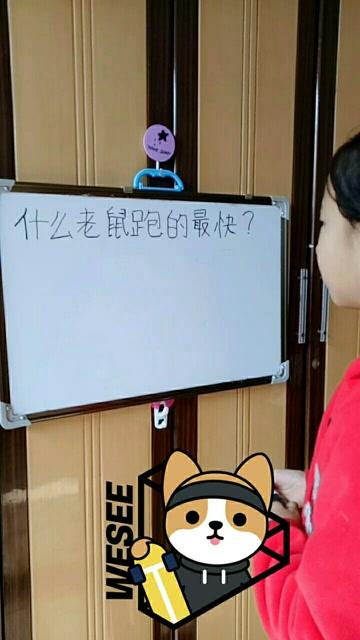 什么老鼠跑的最快？
WESEE